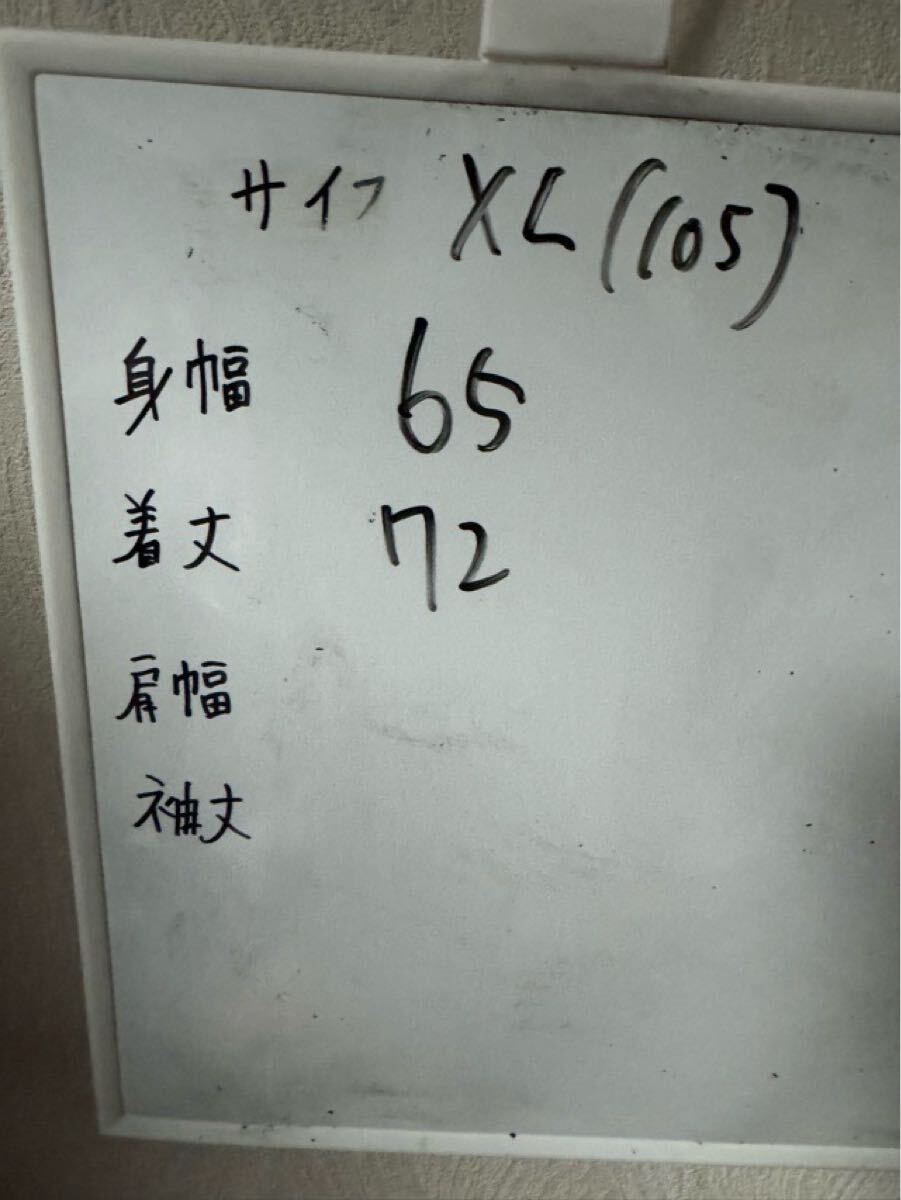 サイズ XL(105)
身幅 65
着丈 72
肩幅
袖丈